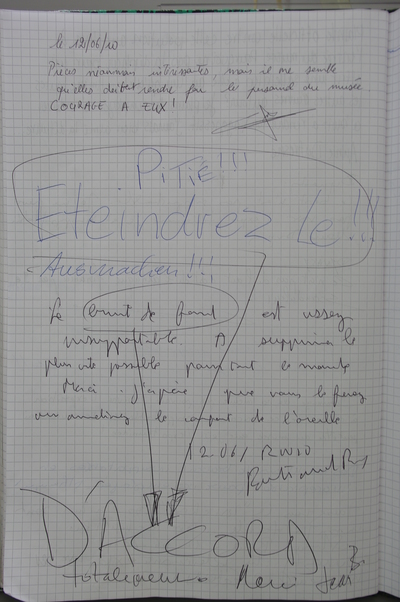 le 12/06/10
Pièces néanmoins intéressantes, mais il me semble
qu'elles doivent rendre fou le personnel du musée
COURAGE A EUX!
PITIÉ!!!
Eteindrez le!!!
Le bruit de fond est assez
insupportable. A supprimer le
plus vite possible pour tout le monde
Merci. J'espère que vous le ferez
ou améliorez le confort de l'oreille
12.06/
D'ACCORD
totalement. Merci